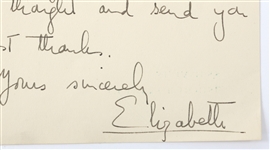 thought and send you
st thanks.
Yours sincerely
Elizabeth